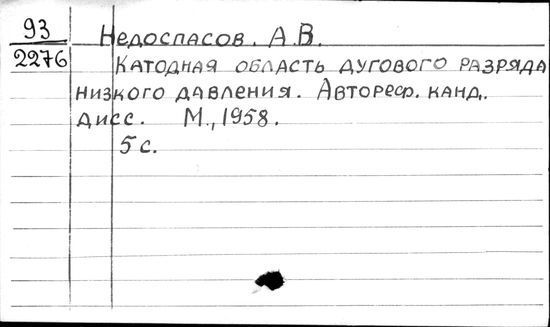 93
2276
Недоспасов. А.В.
Катодная область дугового разряда
низкого давления. Автореф. канд.
дисс. М., 1958.
5 с.